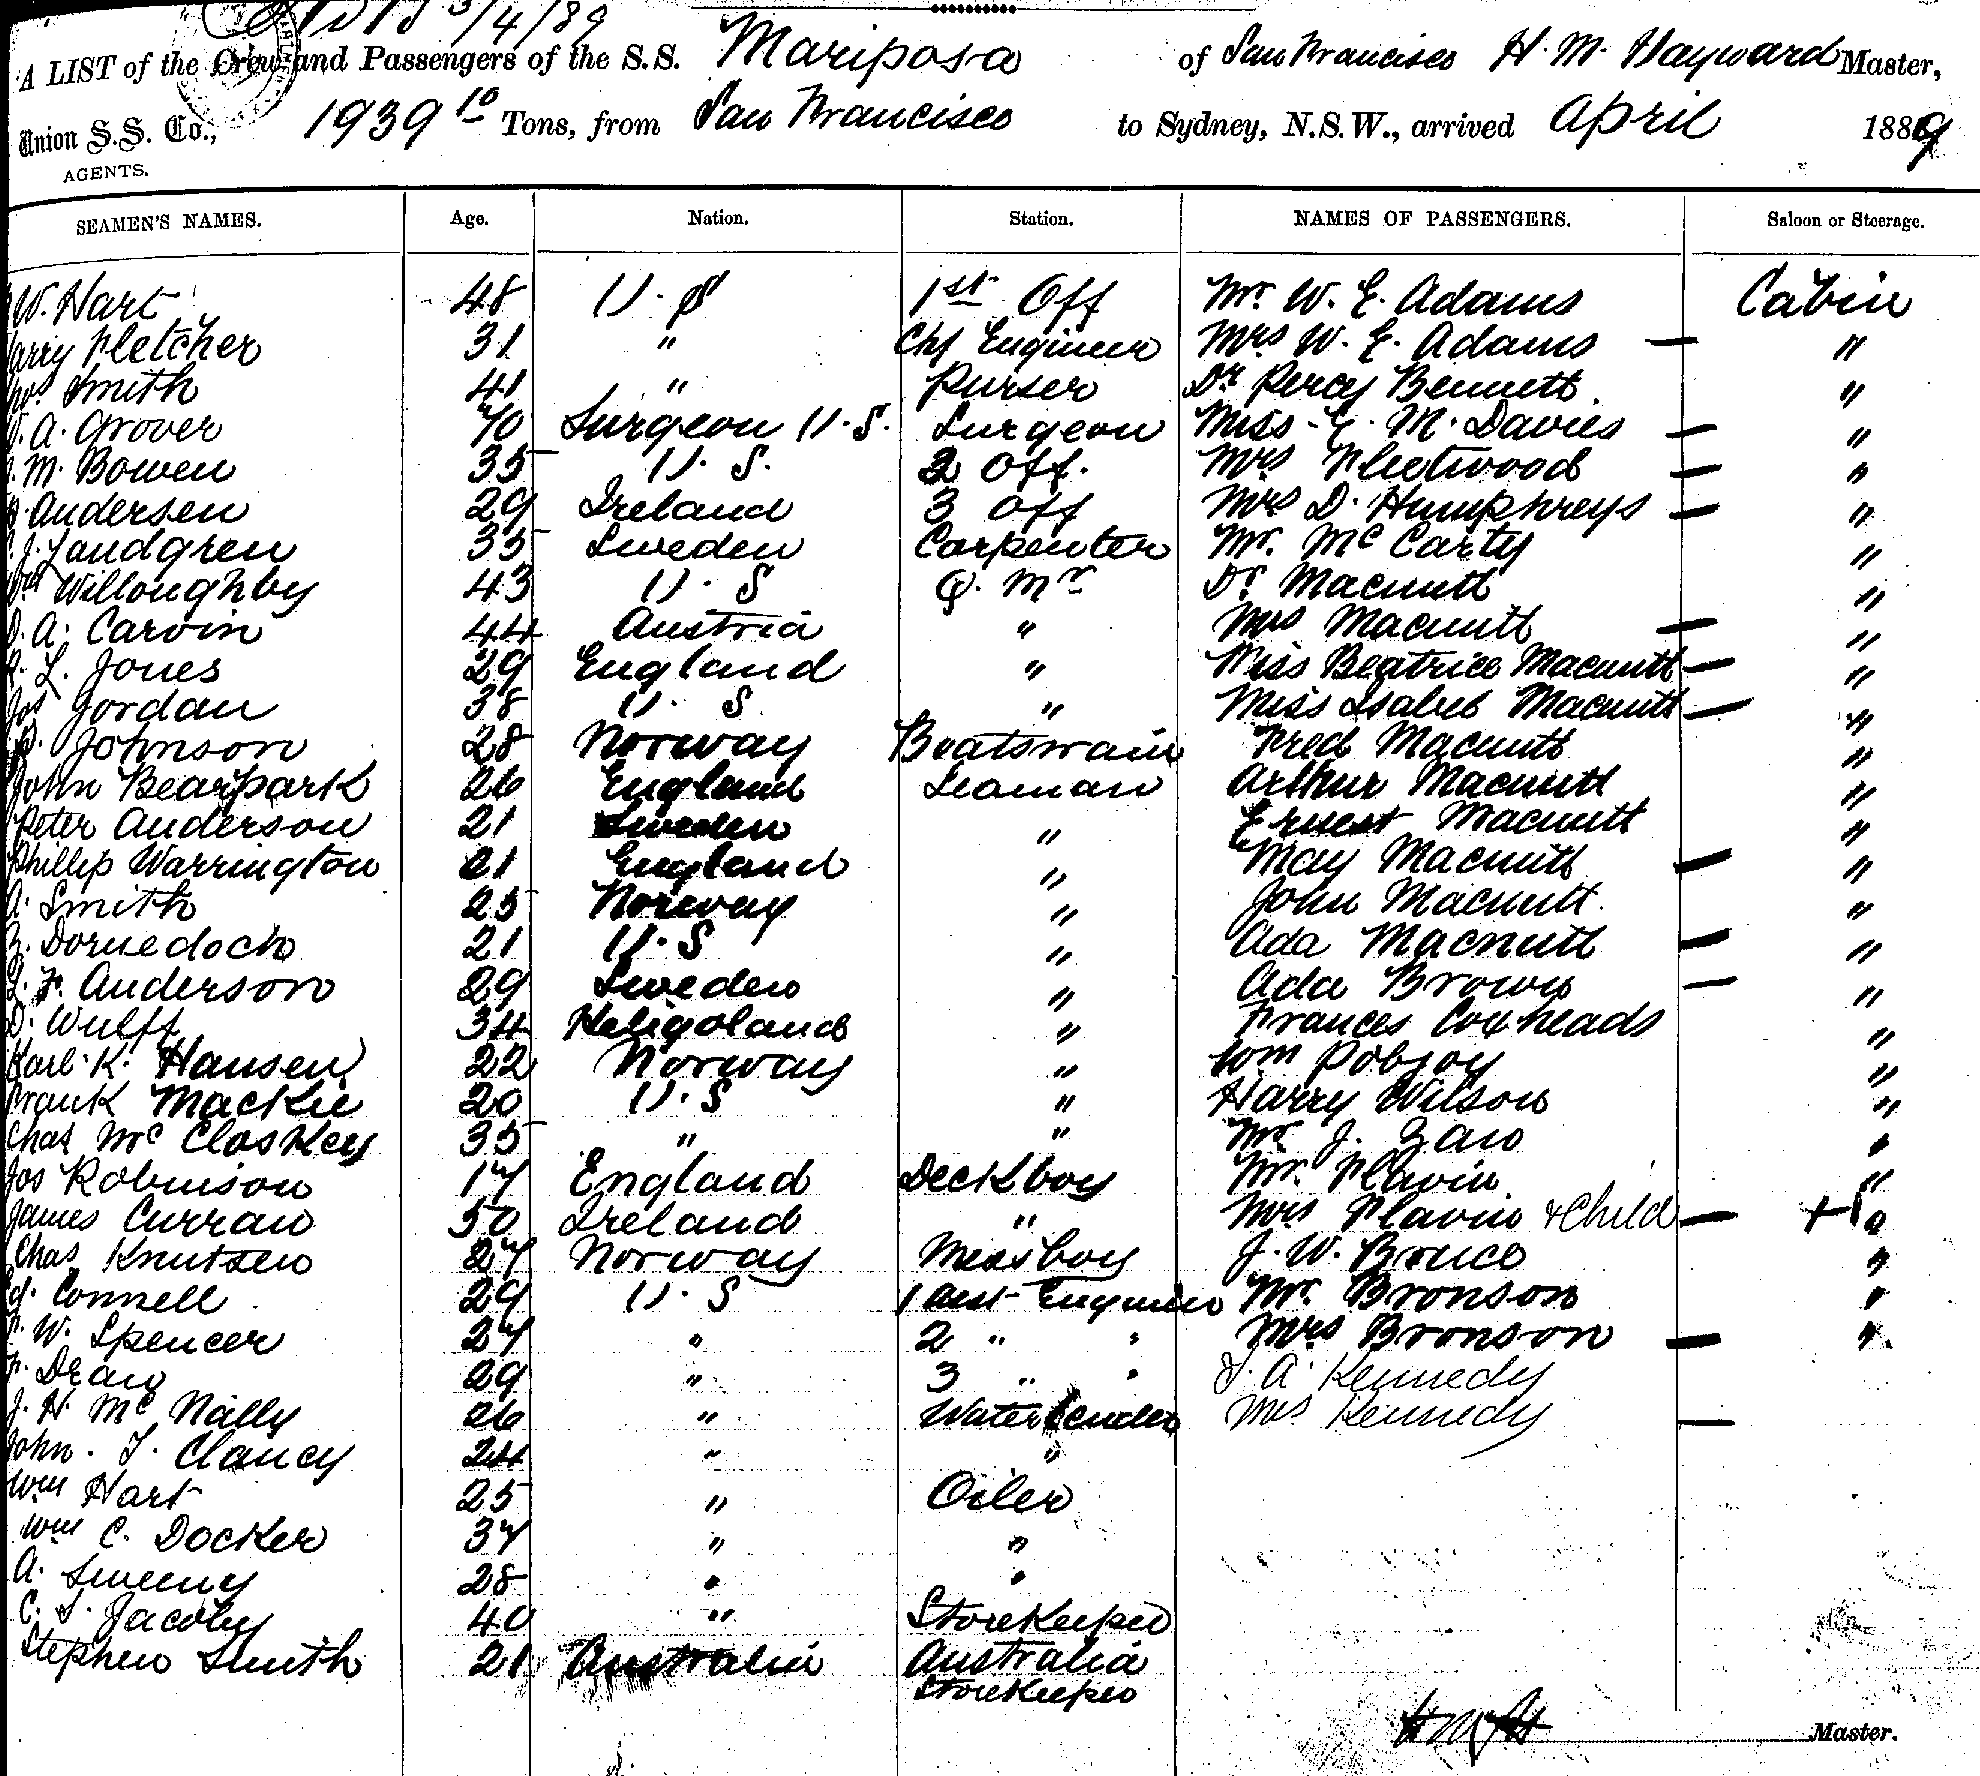 3/4/89
A LIST of the Crew and Passengers of the S.S. Mariposa of San Francisco H. M. Hayward Master,
Union S.S. Co., 1939 10 Tons, from San Francisco to Sydney, N.S.W., arrived April 1889
AGENTS.
SEAMEN'S NAMES. Age. Nation. Station. NAMES OF PASSENGERS. Saloon or Steerage.
W. Hart 48 U.S 1st Off Mr. W. E. Adams Cabin
Harry Fletcher 31 " Chf Engineer Mrs W. E. Adams — "
Thos Smith 41 " Purser Dr Percy Bennett "
A. Grover 70 Surgeon U.S. Surgeon Miss E. M. Davies — "
M. Bowen 35 U.S. 2 Off. Mrs Fleetwood — "
Andersen 29 Ireland 3 Off Mrs D. Humphreys — "
J. Landgren 35 Sweden Carpenter Mr. McCarty "
Wm Willoughby 43 U.S Q. Mr Dr Macnutt "
D. A. Carvin 44 Austria " Mrs Macnutt — "
L. Jones 29 England " Miss Beatrice Macnutt — "
Jos Jordan 38 U.S " Miss Isabel Macnutt — "
P. Johnson 28 Norway Boatswain Fred Macnutt "
John Bearpark 26 England Seaman Arthur Macnutt "
Peter Anderson 21 Sweden " Ernest Macnutt "
Phillip Warrington 21 England " May Macnutt — "
A. Smith 25 Norway " John Macnutt. "
Dornedoch 21 U.S " Ada Macnutt — "
F. Anderson 29 Sweden " Ada Brown — "
D. Wulff 34 Heligoland " Frances Coxheads "
Karl K. Hansen 22 Norway " Wm Pobjoy "
Frank Mackie 20 U.S " Harry Wilson "
Chas McCloskey 35 " " Mr J. Zaro "
Jos Robinson 17 England Deckboy Mr. Flavin. "
James Curran 50 Ireland " Mrs Flavin & Child — "
Chas Knutsen 27 Norway Messboy J. W. Bruce "
J. Connell 29 U.S 1 asst Engineer Mr. Bronson "
W. Spencer 27 " 2 " " Mrs Bronson — "
F. Dean 29 " 3 " " J. A. Kennedy
J. H. McNally 26 " Watertender Mrs Kennedy —
John. J. Clancy 24 " "
Wm Hart 25 " Oiler
Wm C. Docker 37 " "
A. Sweeny 28 " "
C. S. Jacoby 40 " Storekeeper
Stephen Smith 21 Australia Australia
Storekeeper
Master.